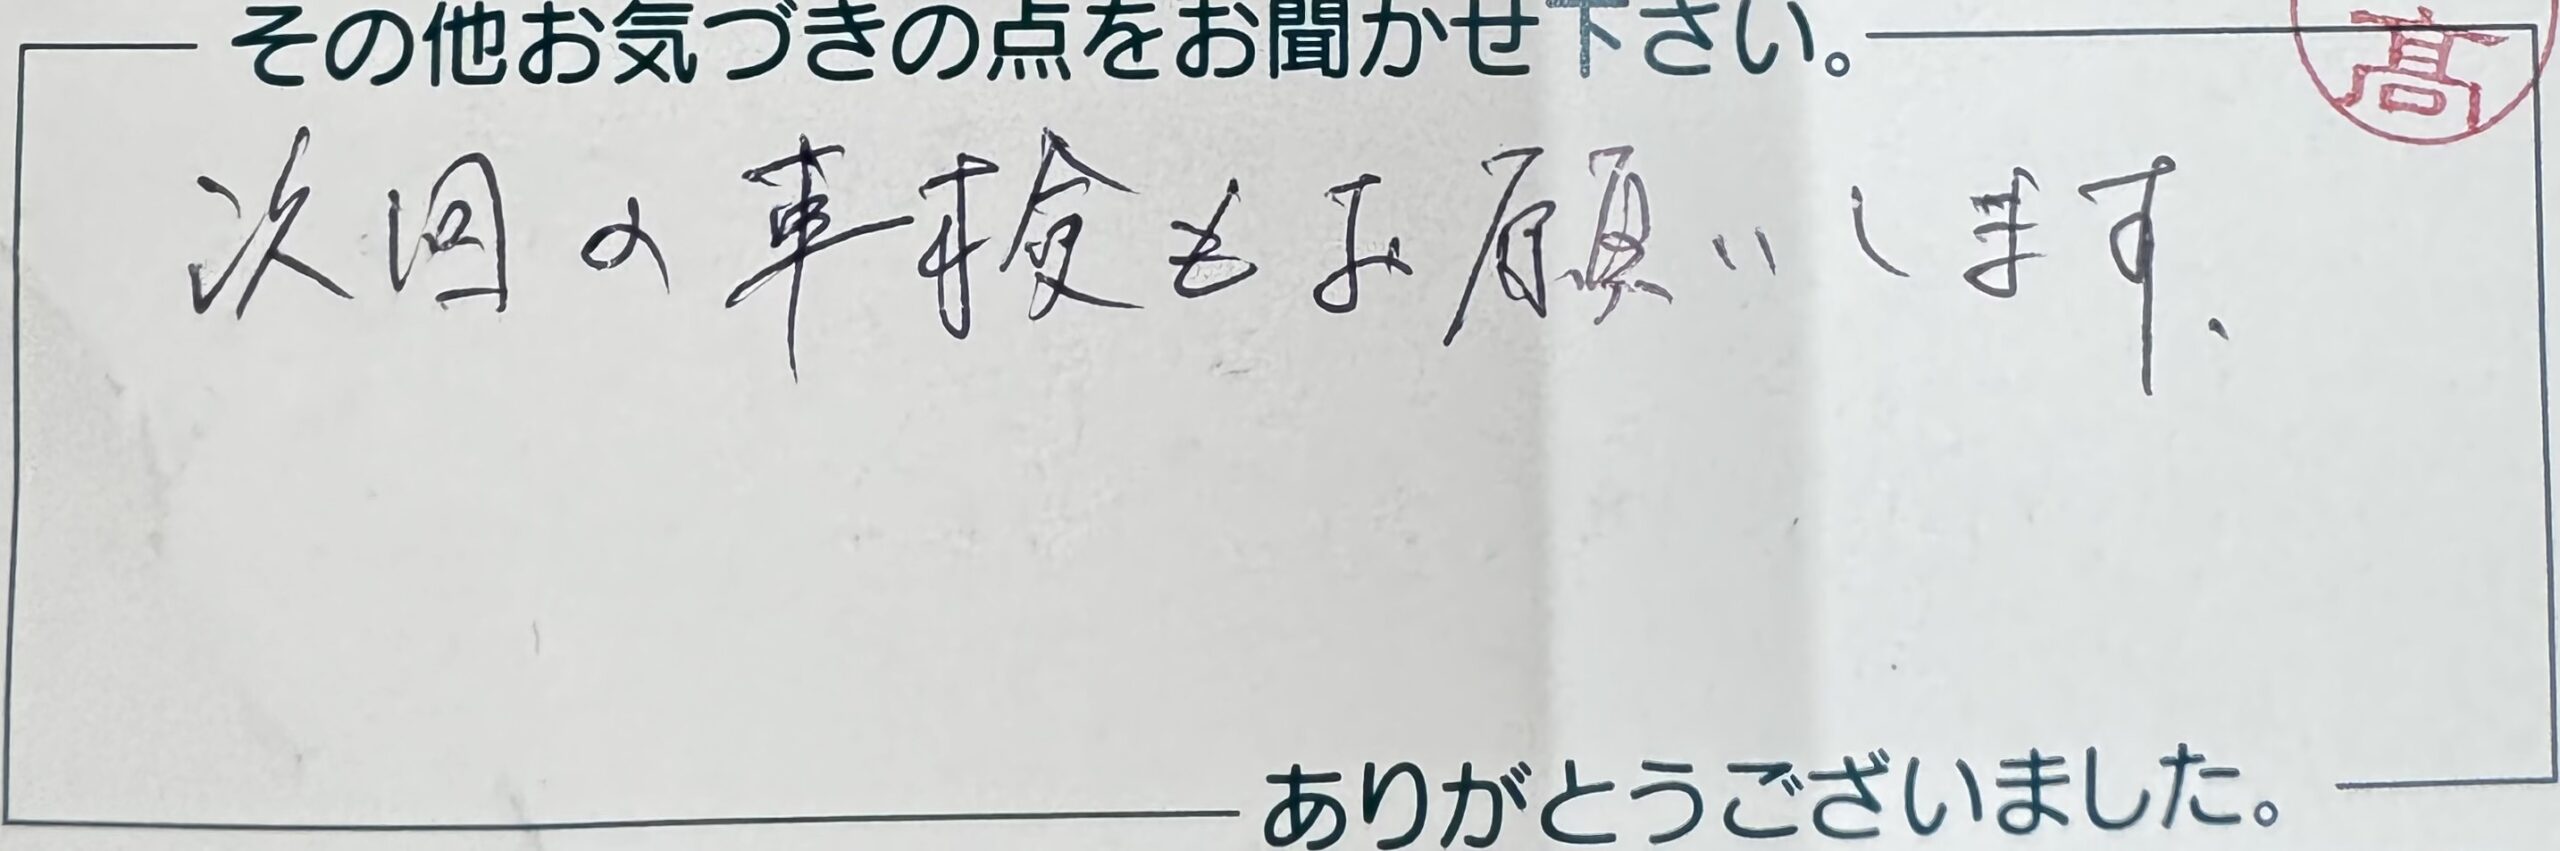 その他お気づきの点をお聞かせ下さい。
髙
次回の車検もお願いします、
ありがとうございました。